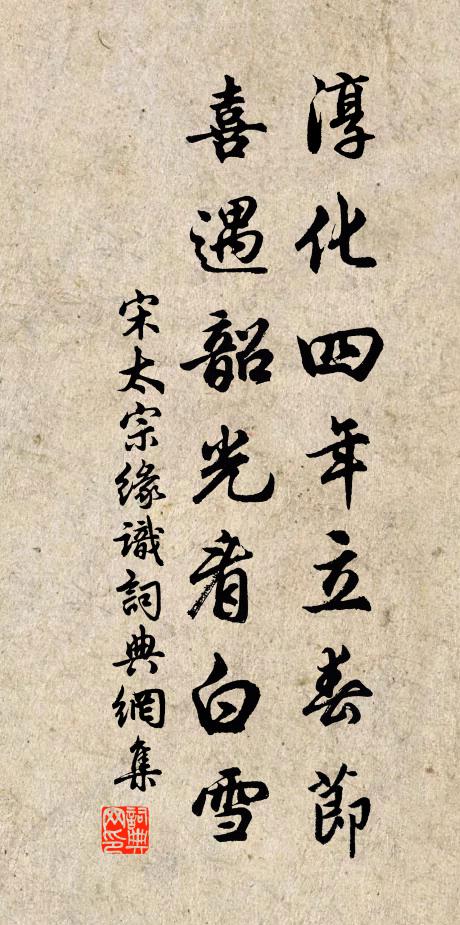 淳化四年立春節
喜遇韶光看白雪
宋太宗緣識詞典網集
詞典网印